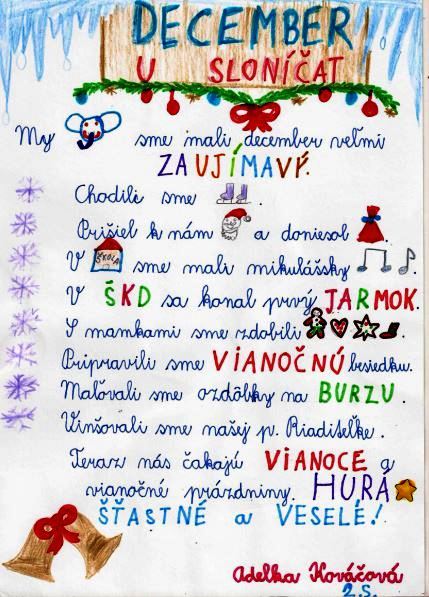 DECEMBER
U SLONÍČAT
My sme mali december veľmi
ZAUJÍMAVÝ.
Chodili sme .
Prišiel k nám a doniesol .
V ŠKOLA sme mali mikulášsky
V ŠKD sa konal prvý JARMOK.
S mamkami sme zdobili .
Pripravili sme VIANOČNÚ besiedku.
Maľovali sme ozdôbky na BURZU.
Vinšovali sme našej p. Riaditeľke.
Teraz nás čakajú VIANOCE a
vianočné prázdniny. HURÁ
ŠŤASTNÉ a VESELÉ!
Adelka Kováčová
2.S.